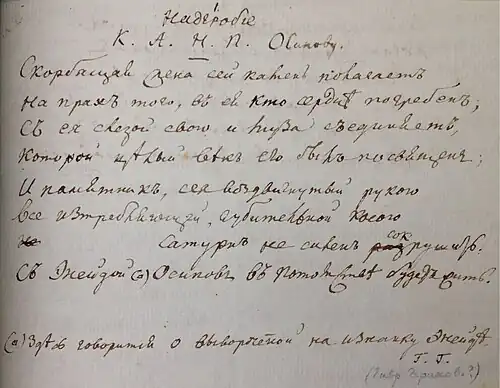 Надгробіе
К. А. Н. П. Осипову.
Скорбящая жена сей камень полагаетъ
На прахъ того, въ ея кто сердцѣ погребенъ;
Съ ея слезой свою и Муза съединяетъ,
Которой цѣлый вѣкъ его былъ посвященъ;
И памятникъ, сея воздвигнутый рукою
Все истребляющей, губительной косою
Сатурнъ не силенъ сокрушить.
Съ Энейдой (а) Осиповъ въ потомствѣ будетъ жить.
(а) Здѣсь говорится о вывороченой на изнанку Энейдѣ.
Г. Г.